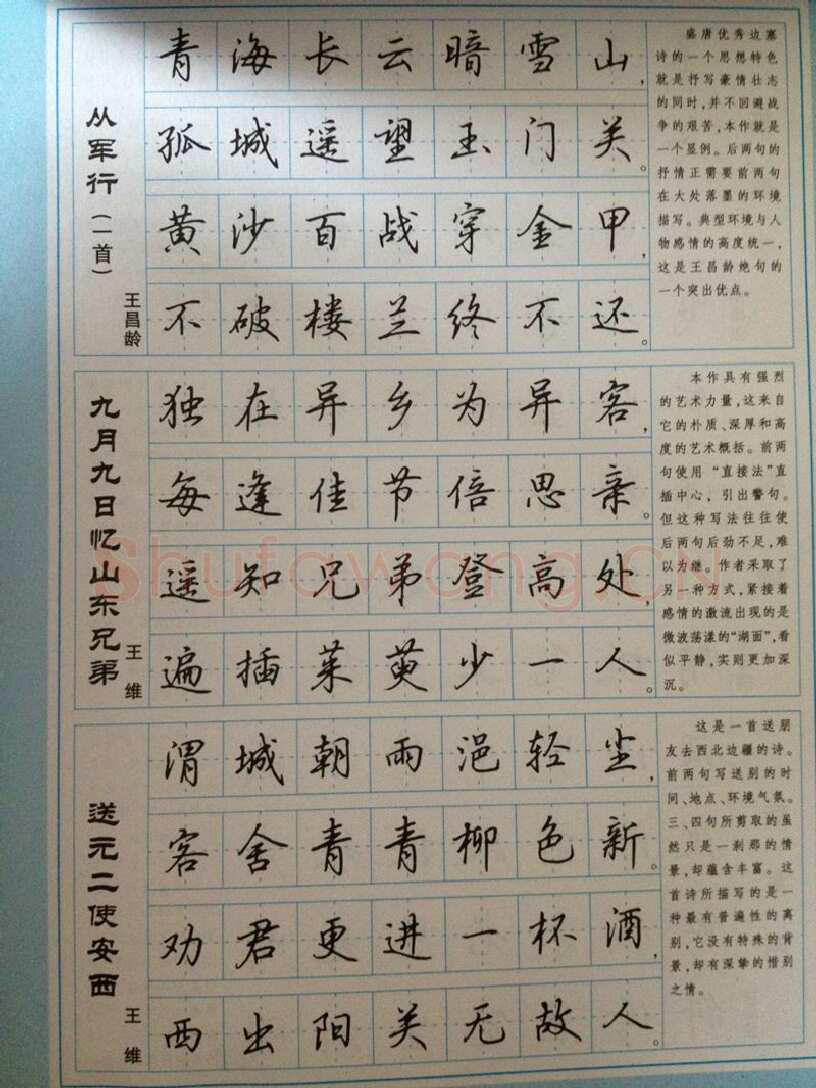 从军行(一首)
王昌龄
青海长云暗雪山，
孤城遥望玉门关。
黄沙百战穿金甲，
不破楼兰终不还。
盛唐优秀边塞
诗的一个思想特色
就是抒写豪情壮志
的同时,并不回避战
争的艰苦,本作就是
一个显例。后两句的
抒情正需要前两句
在大处落墨的环境
描写。典型环境与人
物感情的高度统一,
这是王昌龄绝句的
一个突出优点。
九月九日忆山东兄弟
王维
独在异乡为异客，
每逢佳节倍思亲。
遥知兄弟登高处，
遍插茱萸少一人。
本作具有强烈
的艺术力量,这来自
它的朴质、深厚和高
度的艺术概括。前两
句使用“直接法”直
插中心，引出警句。
但这种写法往往使
后两句后劲不足,难
以为继。作者采取了
另一种方式,紧接着
感情的激流出现的是
微波荡漾的“湖面”,看
似平静,实则更加深
沉。
送元二使安西
王维
渭城朝雨浥轻尘，
客舍青青柳色新。
劝君更进一杯酒，
西出阳关无故人。
这是一首送朋
友去西北边疆的诗。
前两句写送别的时
间、地点、环境气氛。
三、四句所剪取的虽
然只是一刹那的情
景,却蕴含丰富。这
首诗所描写的是一
种最有普遍性的离
别,它没有特殊的背
景,却有深挚的惜别
之情。
Shufawang.cn